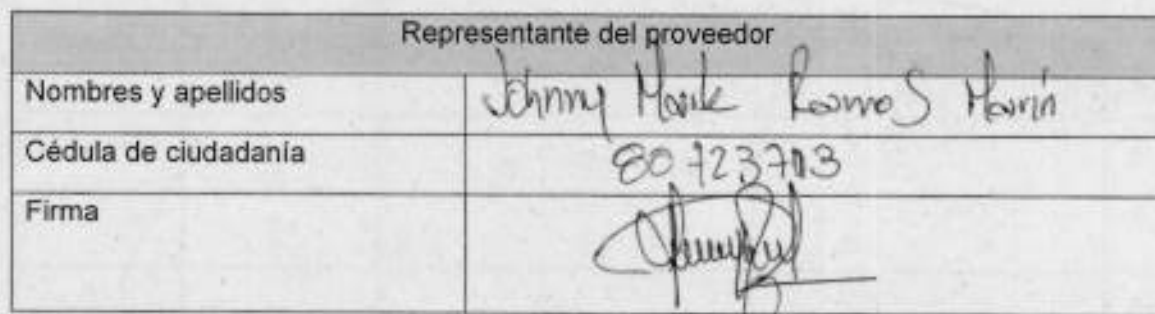 Representante del proveedor
Nombres y apellidos Johnny Mark Ramos Marín
Cédula de ciudadanía
Firma